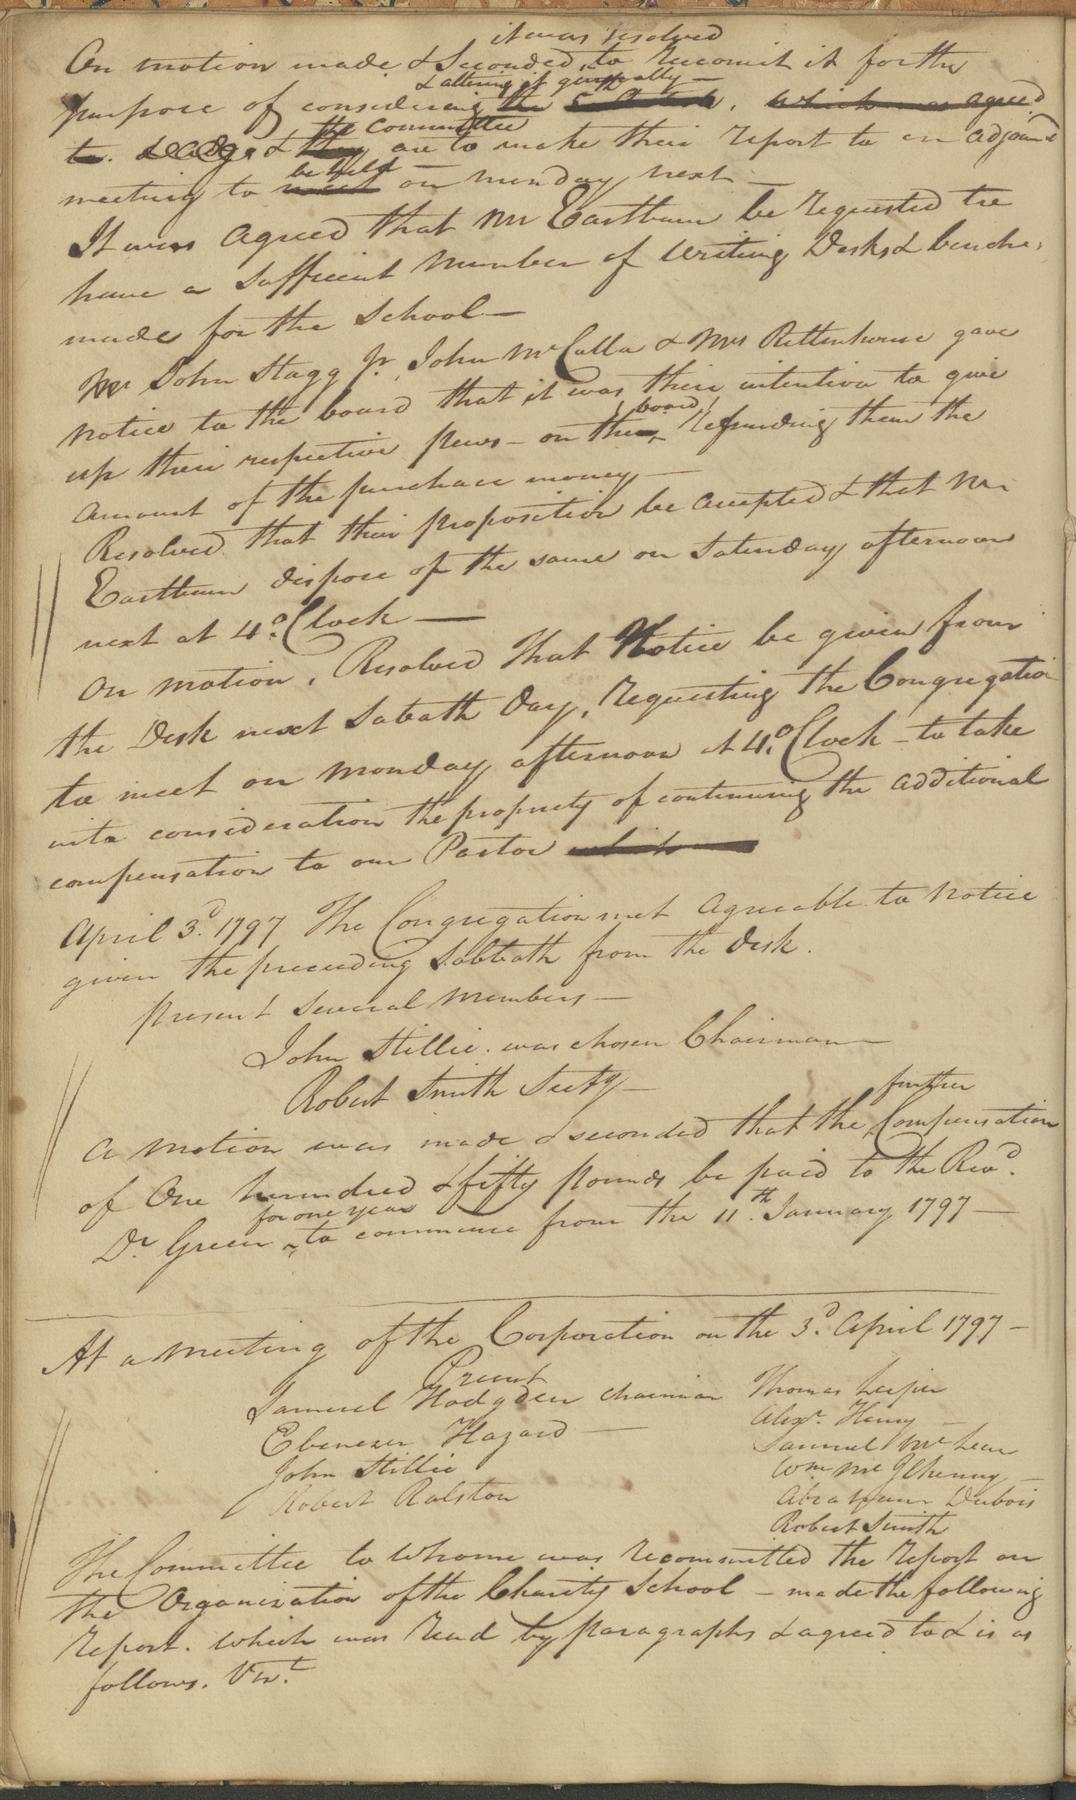 it was resolved
On motion made & Seconded, to recomit it for the
& altering it generally —
purpose of considering the . which was agreed
the Committee
to. & they are to make their report to an adjourd
be held
meeting to meet on Monday next —
It was Agreed that Mr Eastburn be requested to
have a Sufficient Number of Writing Desks & benches
made for the School —
Mr John Stagg Jr. John McCulla & Mrs Rittenhouse gave
notice to the board that it was their intention to give
board
up their respective pews — on the refunding them the
Amount of the purchace money —
Resolved that their proposition be accepted & that Mr
Eastburn dispose of the same on Saturday afternoon
next at 4 o'Clock —
On Motion, Resolved That Notice be given from
the Desk next Sabath Day, requesting the Congregation
to meet on Monday afternoon at 4 o'Clock — to take
into consideration the propriety of continuing the additional
compensation to our Pastor which
April 3d. 1797 The Congregation met Agreable to Notice
given the preceeding Sabbath from the Desk.
present Several Members —
John Stillie. was chosen Chairman —
Robert Smith Secty —
further
A Motion was made & seconded that the Compensation
of One hunndred & fifty pounds be paid to the Revd.
for one year
Dr Green to commence from the 11th. January 1797 —
At a meeting of the Corporation on the 3d. April 1797 —
Present
Samuel Hodgden Chairman
Ebenezer Hazard —
John Stillie
Robert Ralston
Thomas Leiper
Alexr. Henry —
Samuel McLean
Wm McIlhenny —
Abraham Dubois
Robert Smith
The Committee to Whome was recommitted the report on
the Organization of the Charity School — made the following
report. which was read by paragraphs & agreed to & is as
follows. Vizt